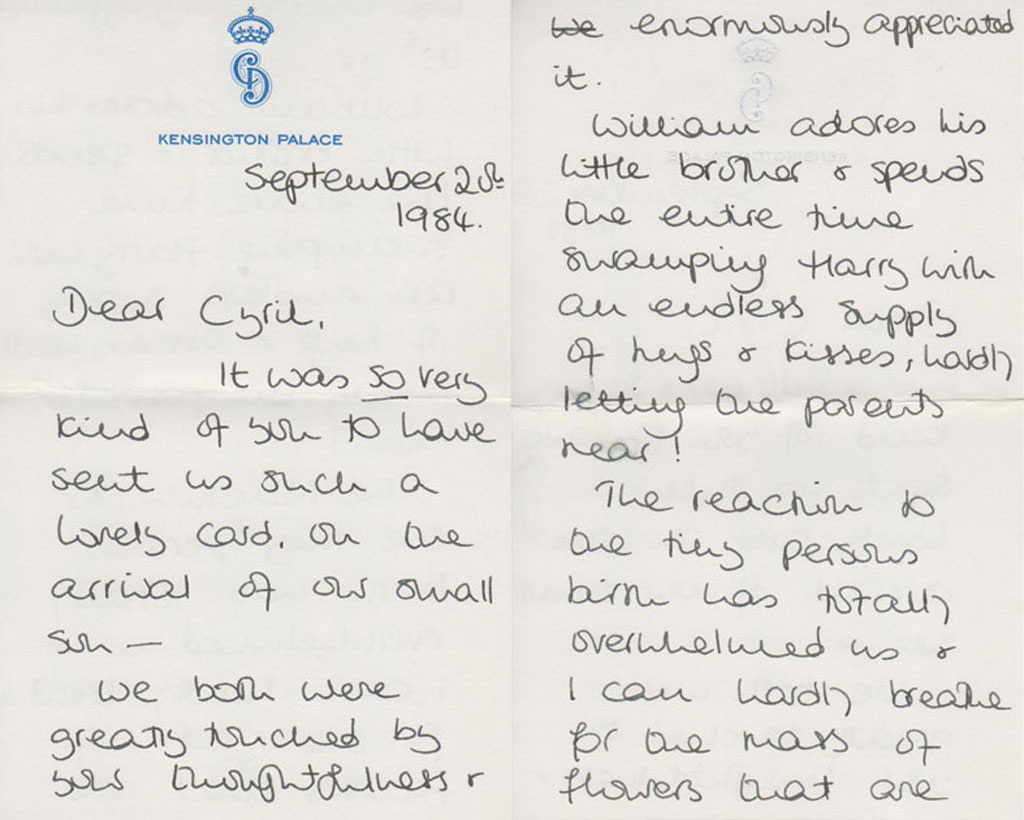 KENSINGTON PALACE
September 20th
1984.
Dear Cyril,
It was so very
kind of you to have
sent us such a
lovely card, on the
arrival of our small
son -
We both were
greatly touched by
your thoughtfulness &
we enormously appreciated
it.
William adores his
little brother & spends
the entire time
swamping Harry with
an endless supply
of hugs & kisses, hardly
letting the parents
near!
The reaction to
one tiny persons
birth has totally
overwhelmed us &
I can hardly breathe
for the mass of
flowers that are